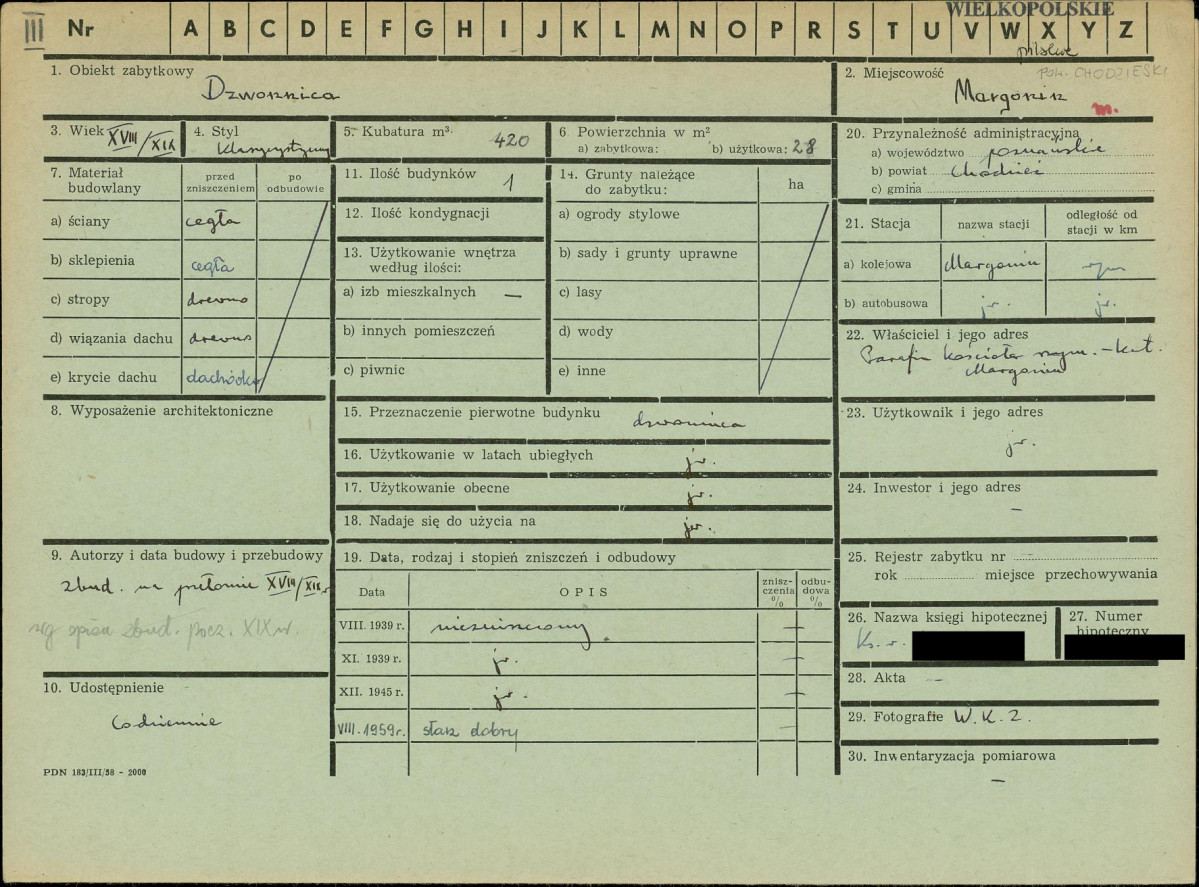 III Nr A B C D E F G H I J K L M N O P R S T U V W X Y Z
WIELKOPOLSKIE
pilskie
pow. CHODZIESKI
1. Obiekt zabytkowy
Dzwonnica
2. Miejscowość
Margonin
m.
3. Wiek XVIII/XIX
4. Styl
klasycystyczny
5. Kubatura m³. 420
6. Powierzchnia w m²
a) zabytkowa: b) użytkowa: 28
20. Przynależność administracyjna
a) województwo poznańskie
b) powiat Chodzież
c) gmina
7. Materiał budowlany
przed zniszczeniem
po odbudowie
a) ściany cegła
b) sklepienia cegła
c) stropy drewno
d) wiązania dachu drewno
e) krycie dachu dachówka
11. Ilość budynków 1
12. Ilość kondygnacji
13. Użytkowanie wnętrza
według ilości:
a) izb mieszkalnych —
b) innych pomieszczeń
c) piwnic
14. Grunty należące
do zabytku:
ha
a) ogrody stylowe
b) sady i grunty uprawne
c) lasy
d) wody
e) inne
21. Stacja
nazwa stacji
odległość od
stacji w km
a) kolejowa Margonin
b) autobusowa jw. jw.
22. Właściciel i jego adres
Parafia kościoła rzym.-kat.
Margonin
8. Wyposażenie architektoniczne
15. Przeznaczenie pierwotne budynku dzwonnica
16. Użytkowanie w latach ubiegłych jw.
17. Użytkowanie obecne jw.
18. Nadaje się do użycia na jw.
23. Użytkownik i jego adres
jw.
24. Inwestor i jego adres
–
9. Autorzy i data budowy i przebudowy
zbud. na przełomie XVIII/XIX w.
wg opisu zbud. pocz. XIX w.
10. Udostępnienie
codziennie
19. Data, rodzaj i stopień zniszczeń i odbudowy
Data OPIS
znisz-
czenia
%
odbu-
dowa
%
VIII. 1939 r. niezniszczony. —
XI. 1939 r. jw. —
XII. 1945 r. jw. —
VIII. 1959 r. stan dobry —
25. Rejestr zabytku nr
rok miejsce przechowywania
26. Nazwa księgi hipotecznej
Ks. w.
27. Numer
hipoteczny
28. Akta —
29. Fotografie W. K. Z.
30. Inwentaryzacja pomiarowa
—
PDN 183/III/58 - 2000